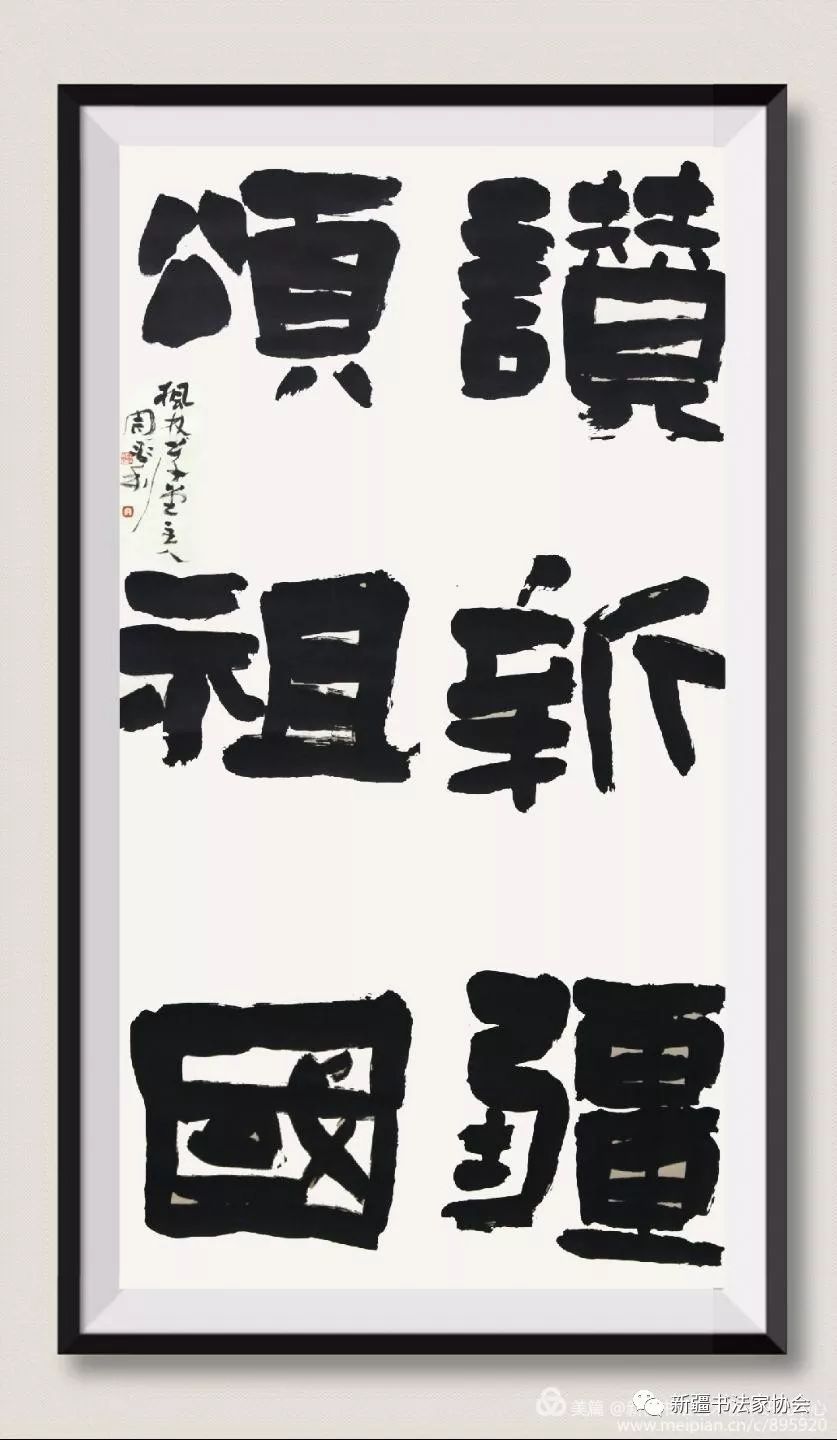 讃新疆
頌祖國
楓林草堂主人
周
新疆书法家协会
美篇 @
心
www.meipian.cn/c/895920